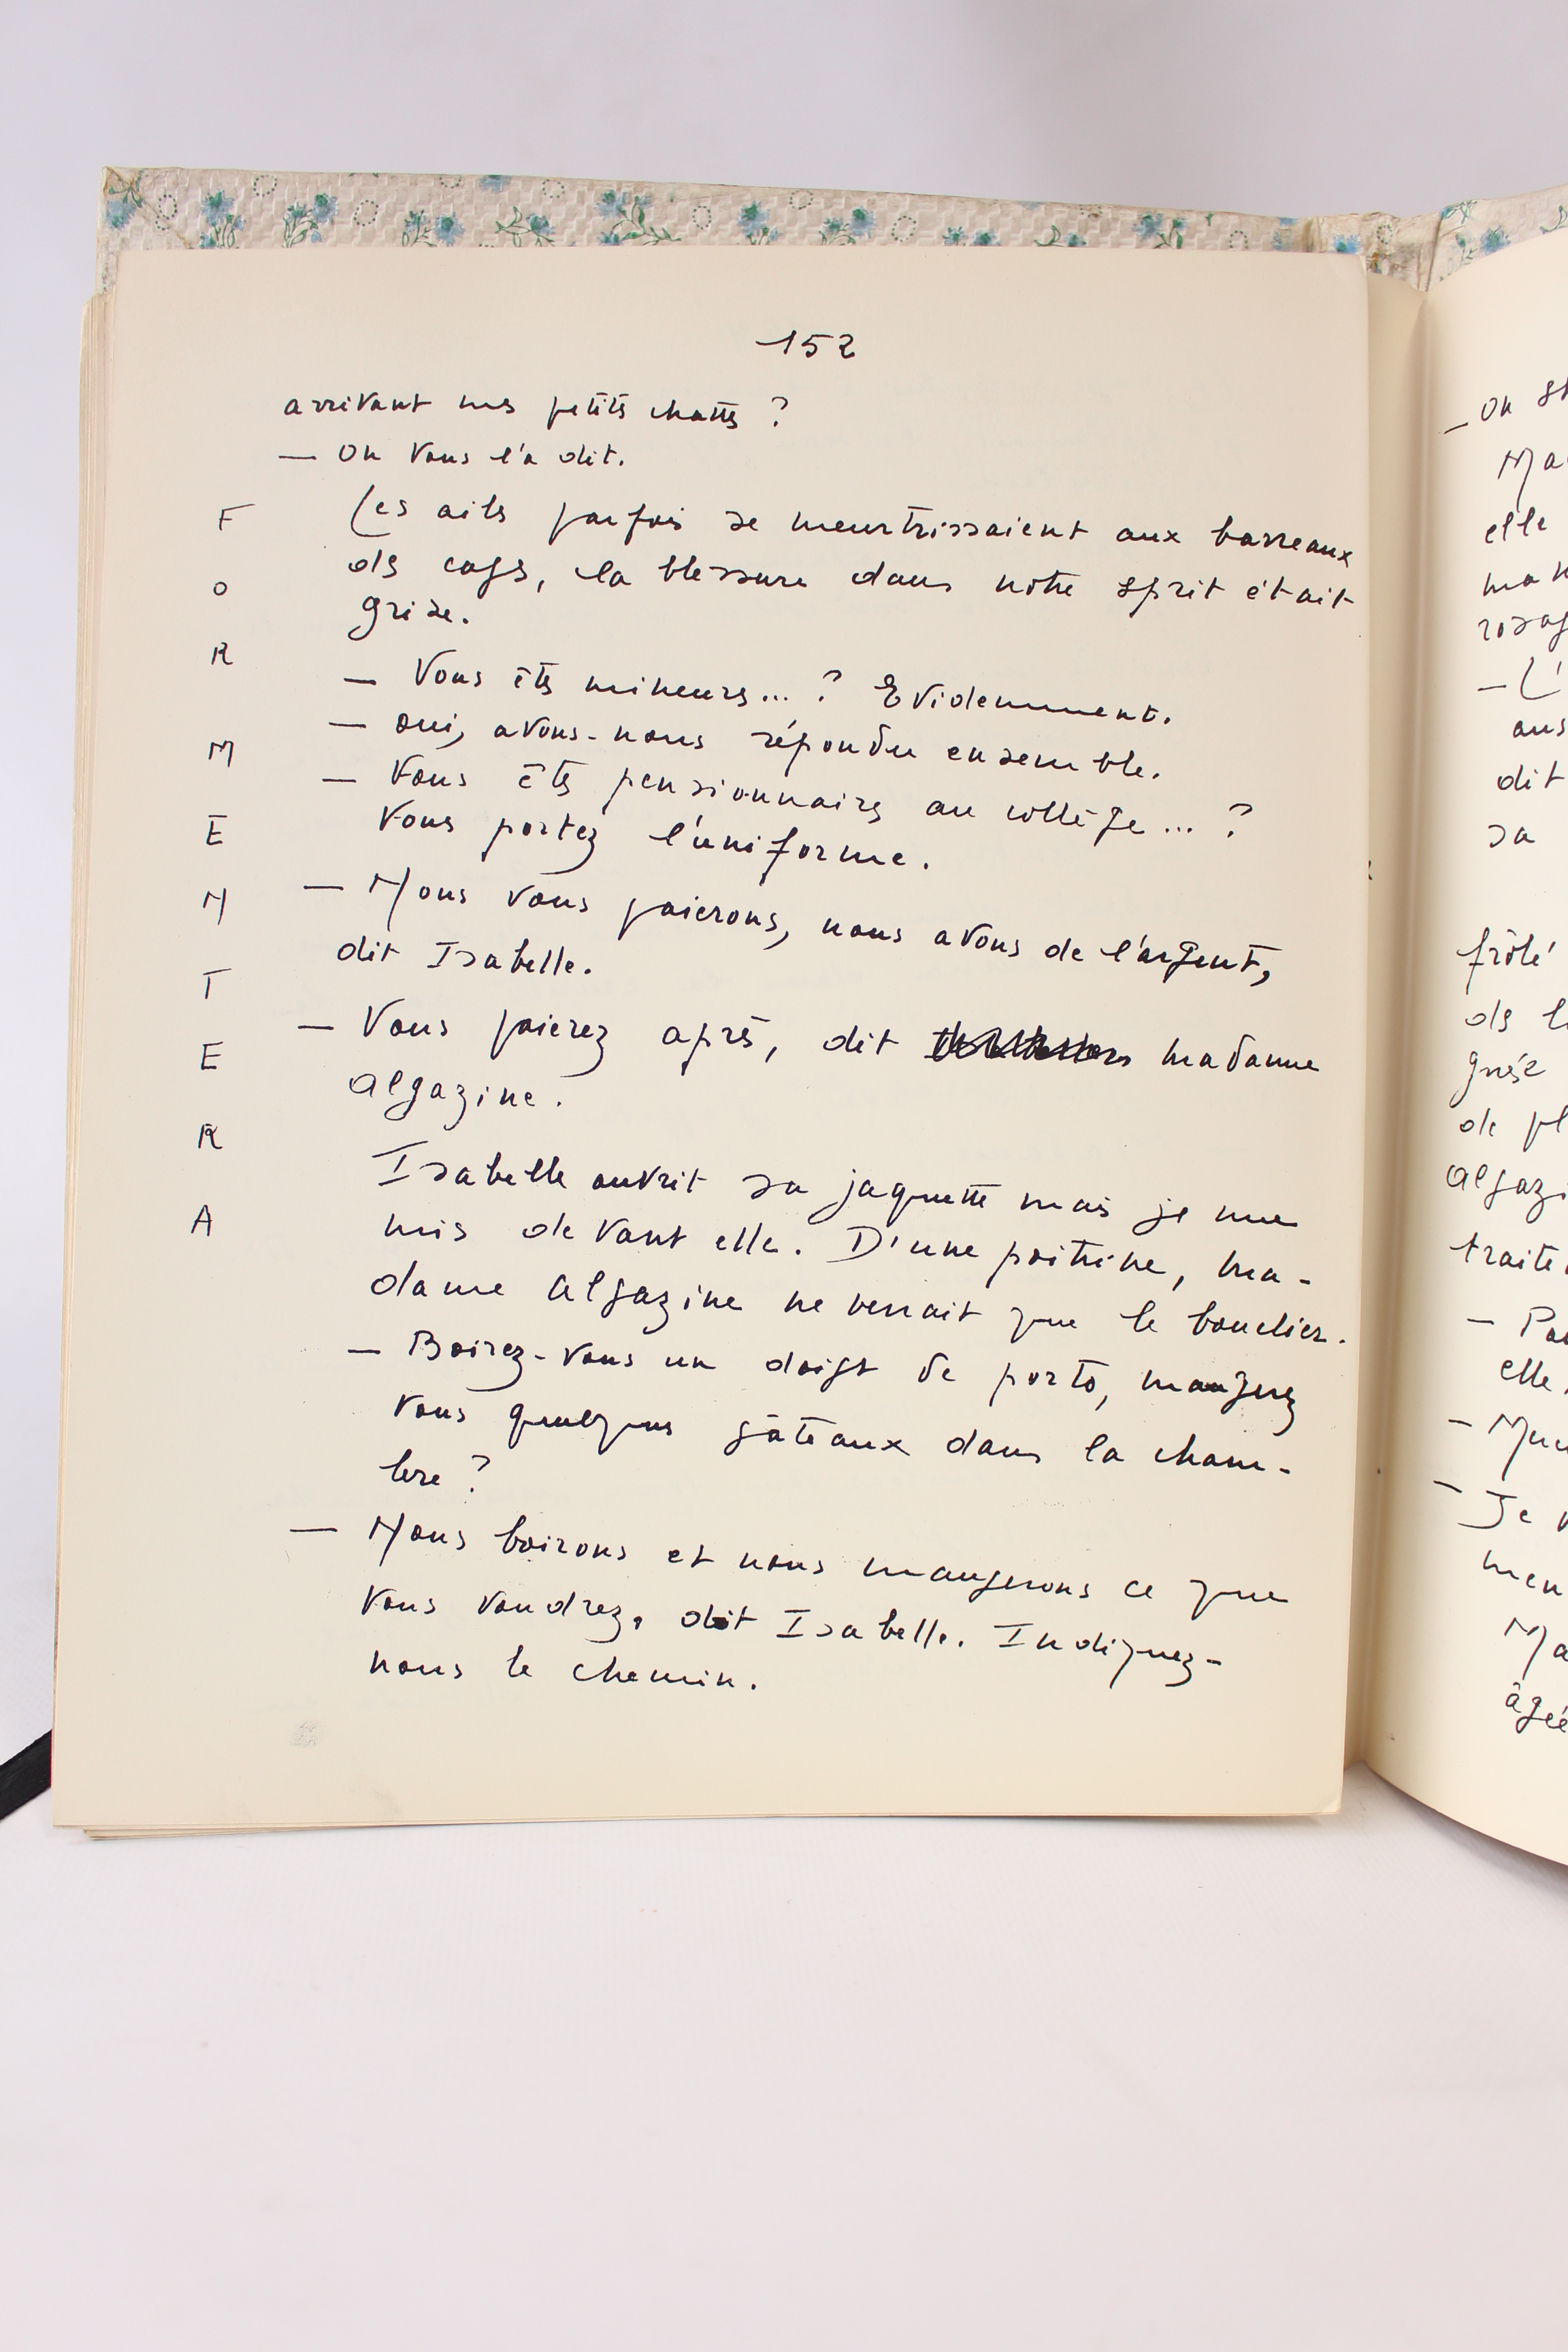 152
arrivant mes petites chattes ?
— On vous l'a dit.
Les ailes parfois se meurtrissaient aux barreaux
des cages, la blessure dans notre esprit était
grise.
— Vous êtes mineures... ? Evidemment.
— Oui, avons-nous répondu ensemble.
— Vous êtes pensionnaires au collège... ?
Vous portez l'uniforme.
— Nous vous paierons, nous avons de l'argent,
dit Isabelle.
— Vous paierez après, dit madame
Algazine.
Isabelle ouvrit sa jaquette mais je me
mis devant elle. D'une poitrine, ma-
dame Algazine ne verrait que le bouclier.
— Boirez-vous un doigt de porto, mangerez
vous quelques gâteaux dans la cham-
bre ?
— Nous boirons et nous mangerons ce que
vous voudrez, dit Isabelle. Indiquez-
nous le chemin.
F
O
R
M
E
N
T
E
R
A
— On
Ma
elle
man
rosag
— L'
aus
dit
sa
frôlé
des l
de pl
Algazi
traite
— Pou
elle,
— Je v
men
Ma
âgée